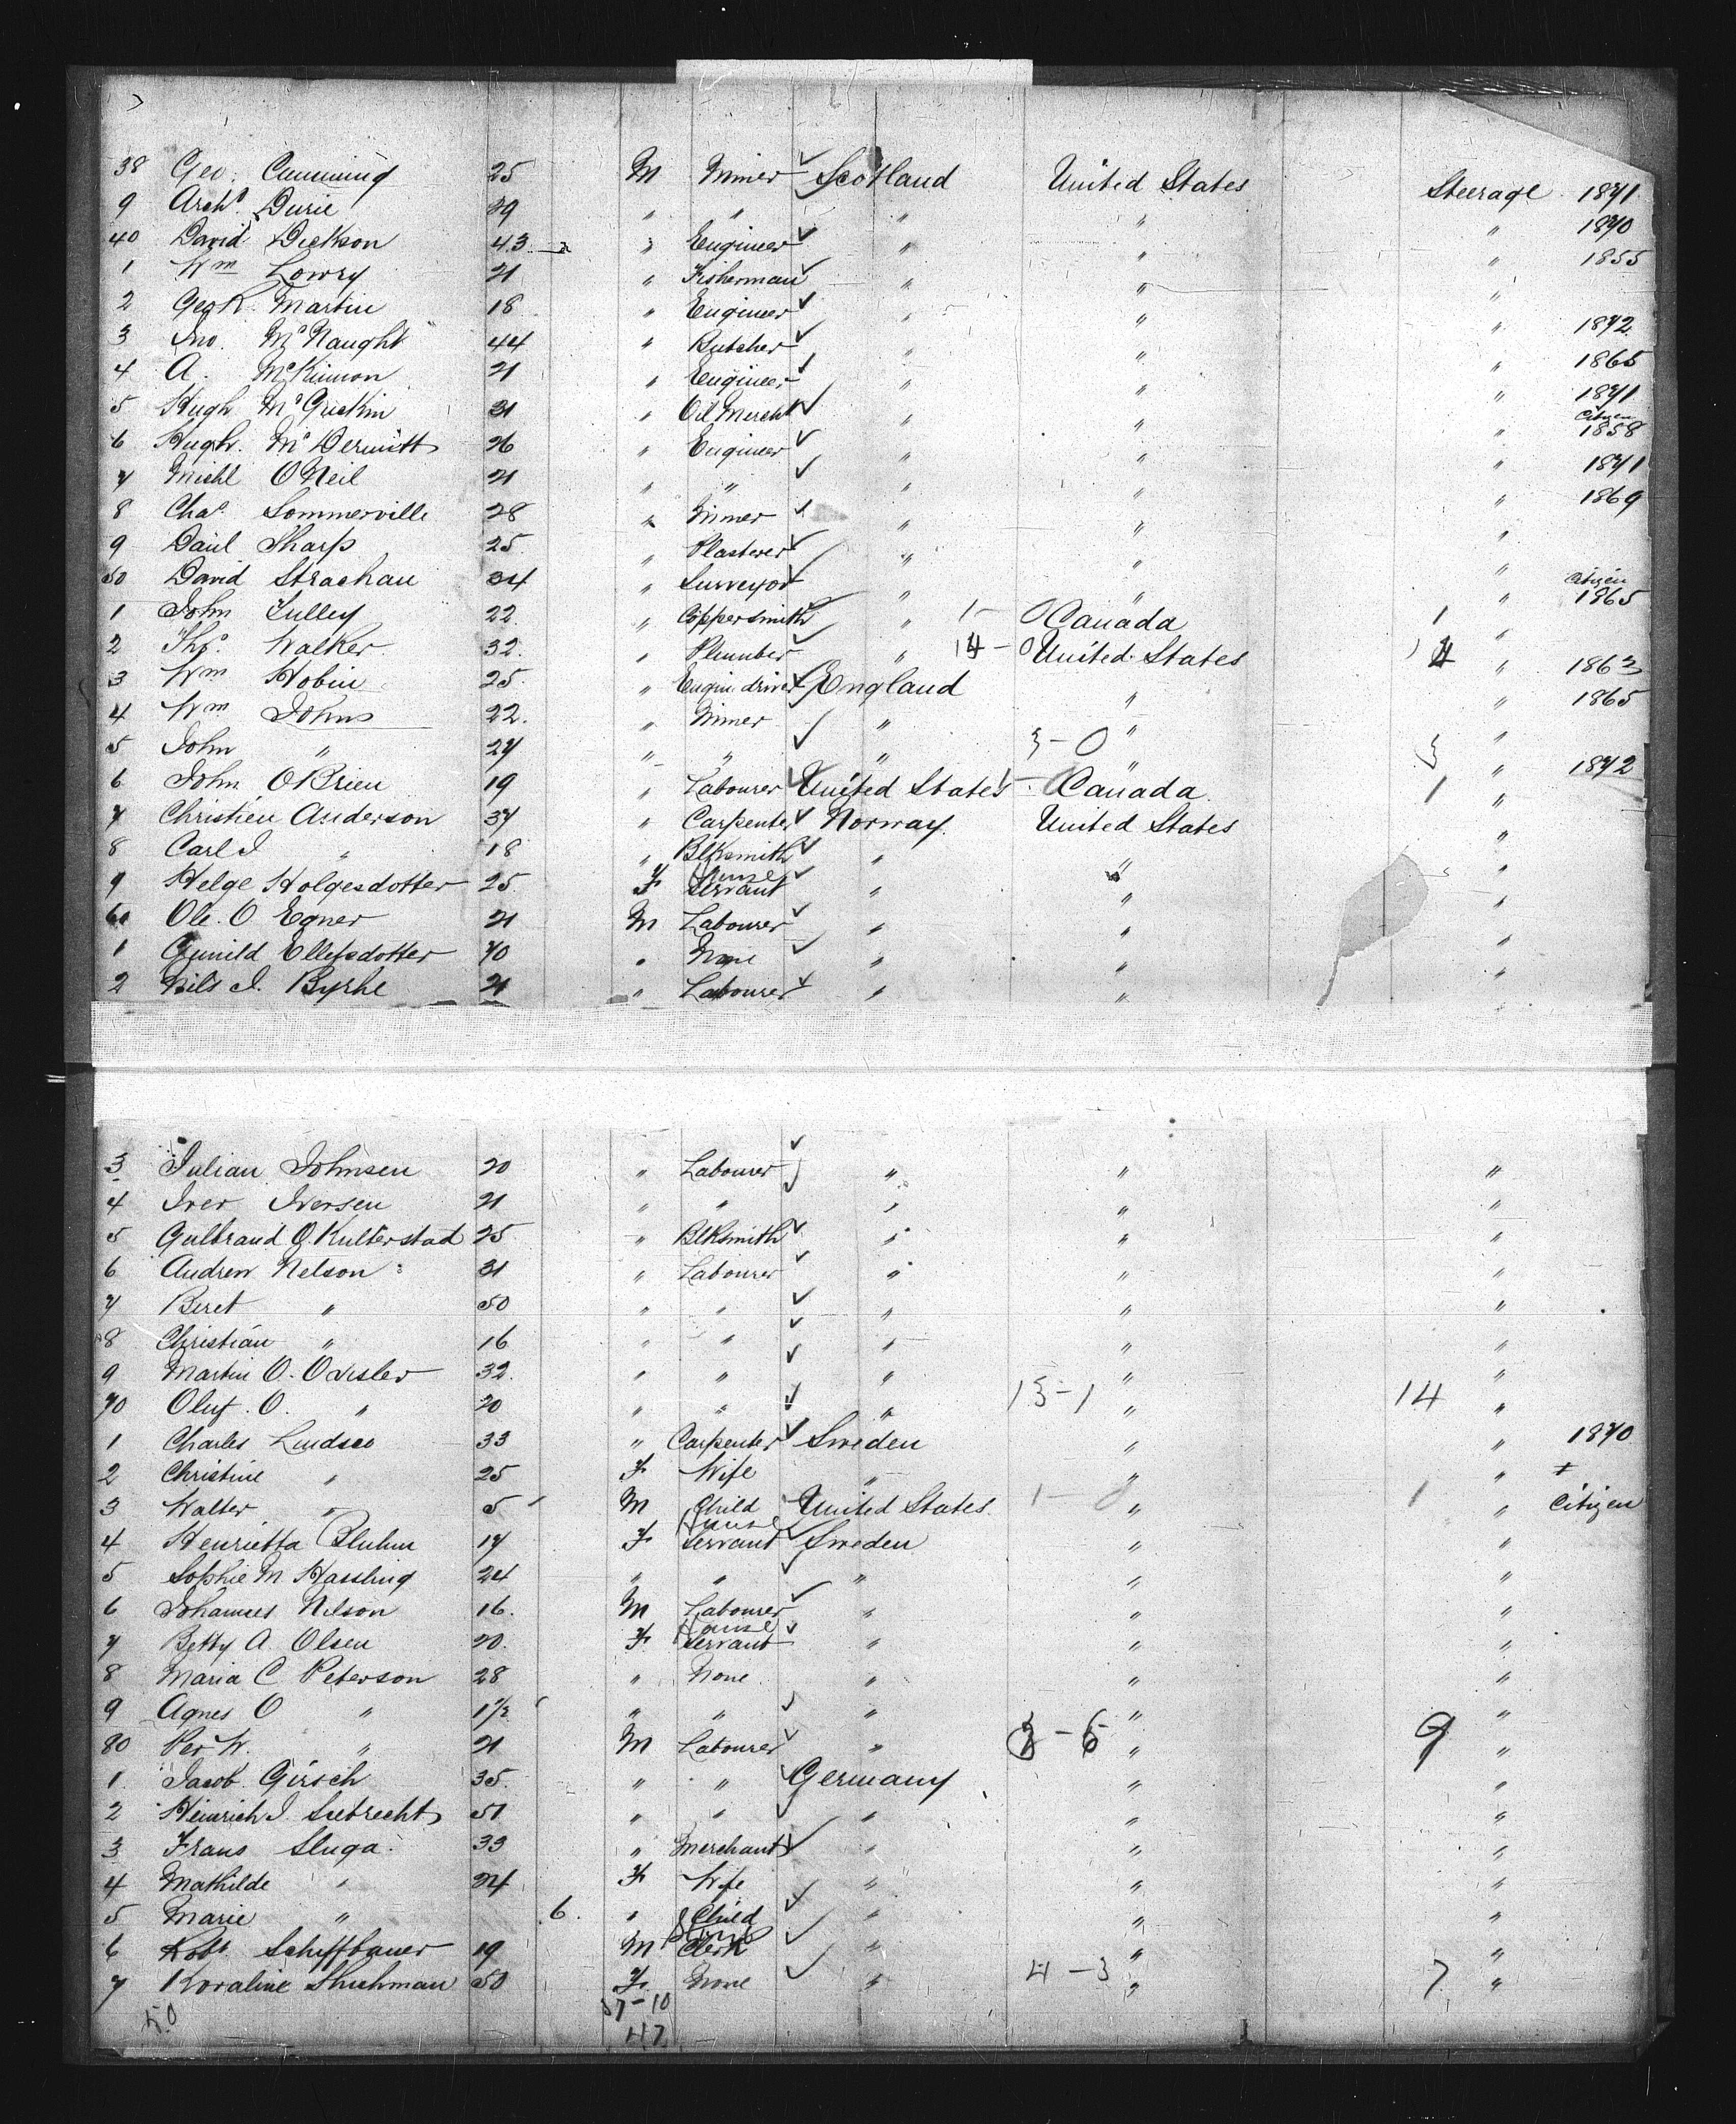 38 Geo. Cumming 25 M Miner Scotland United States Steerage 1871
9 Archd. Durie 29 " " " " " 1870
40 David Dickson 43 " Engineer " " " 1855
1 Wm Lowry 21 " Fisherman " " "
2 Geo R. Martin 18 " Engineer " " " 1872
3 Jno. McNaught 44 " Butcher " " " 1865
4 A. McKinnon 21 " Engineer " " " 1871
5 Hugh McGuskin 31 " Oil Mercht " " " Citizen 1858
6 Hugh McDermitt 26 " Engineer " " " 1871
7 Michl O'Neil 21 " " " " " 1869
8 Chas. Sommerville 28 " Miner " " "
9 Danl Sharp 25 " Plasterer " " "
50 David Strachan 34 " Surveyor " " " Citizen 1865
1 John Tulley 22 " Coppersmith " 1 - 0 Canada 1 "
2 Thos. Walker 32 " Plumber " 14 - 0 United States 14 " 1863
3 Wm Hobin 25 " Engin driver England " " 1865
4 Wm Johns 22 " Miner " " "
5 John " 27 " " " 3 - 0 " 3 " 1872
6 John OBrien 19 " Labourer United States 1 - Canada 1 "
7 Christien Anderson 37 " Carpenter Norway United States "
8 Carl J " 18 " Blksmith " " "
9 Helge Holgesdotter 25 F House Servant " " "
60 Ole. O Egner 21 M Labourer " " "
1 Gunild Ellefsdotter 70 " None " " "
2 Nils J. Byrhe 21 " Labourer " " "
3 Julian Johnsen 20 " Labourer " " "
4 Iver Iversen 21 " " " " "
5 Gulbrand O. Kulterstad 25 " Blksmith " " "
6 Andrew Nelson 31 " Labourer " " "
7 Beret " 50 " " " " "
8 Christian " 16 " " " " "
9 Martin O. Oxesler 32 " " " " "
70 Oluf. O. " 20 " " " 13 - 1 " 14 "
1 Charles Lindsco 33 " Carpenter Sweden " " 1870
2 Christine " 25 F Wife " " " +
3 Walter " 5 M Child United States 1 - 0 " 1 " Citizen
4 Henrietta Bluhm 17 F House Servant Sweden " "
5 Sophie M. Hassling 24 " " " " "
6 Johannes Nilson 16 M Labourer " " "
7 Betty A. Olsen 20 F House Servant " " "
8 Maria C Peterson 28 " None " " "
9 Agnes O " 1 1/2 " " " " "
80 Per W. " 21 M Labourer " 3 - 6 " 9 "
1 Jacob Girsch 35 " " Germany " "
2 Heinrich J. Siebrecht 51 " " " " "
3 Frans Sluga 33 " Merchant " " "
4 Mathilde " 24 F Wife " " "
5 Marie " 6 " Child " " "
6 Robt. Schiffbauer 19 M Clerk " " "
7 Koraline Shuhman 50 F None " 4 - 3 " 7 "
50 37 - 10
47